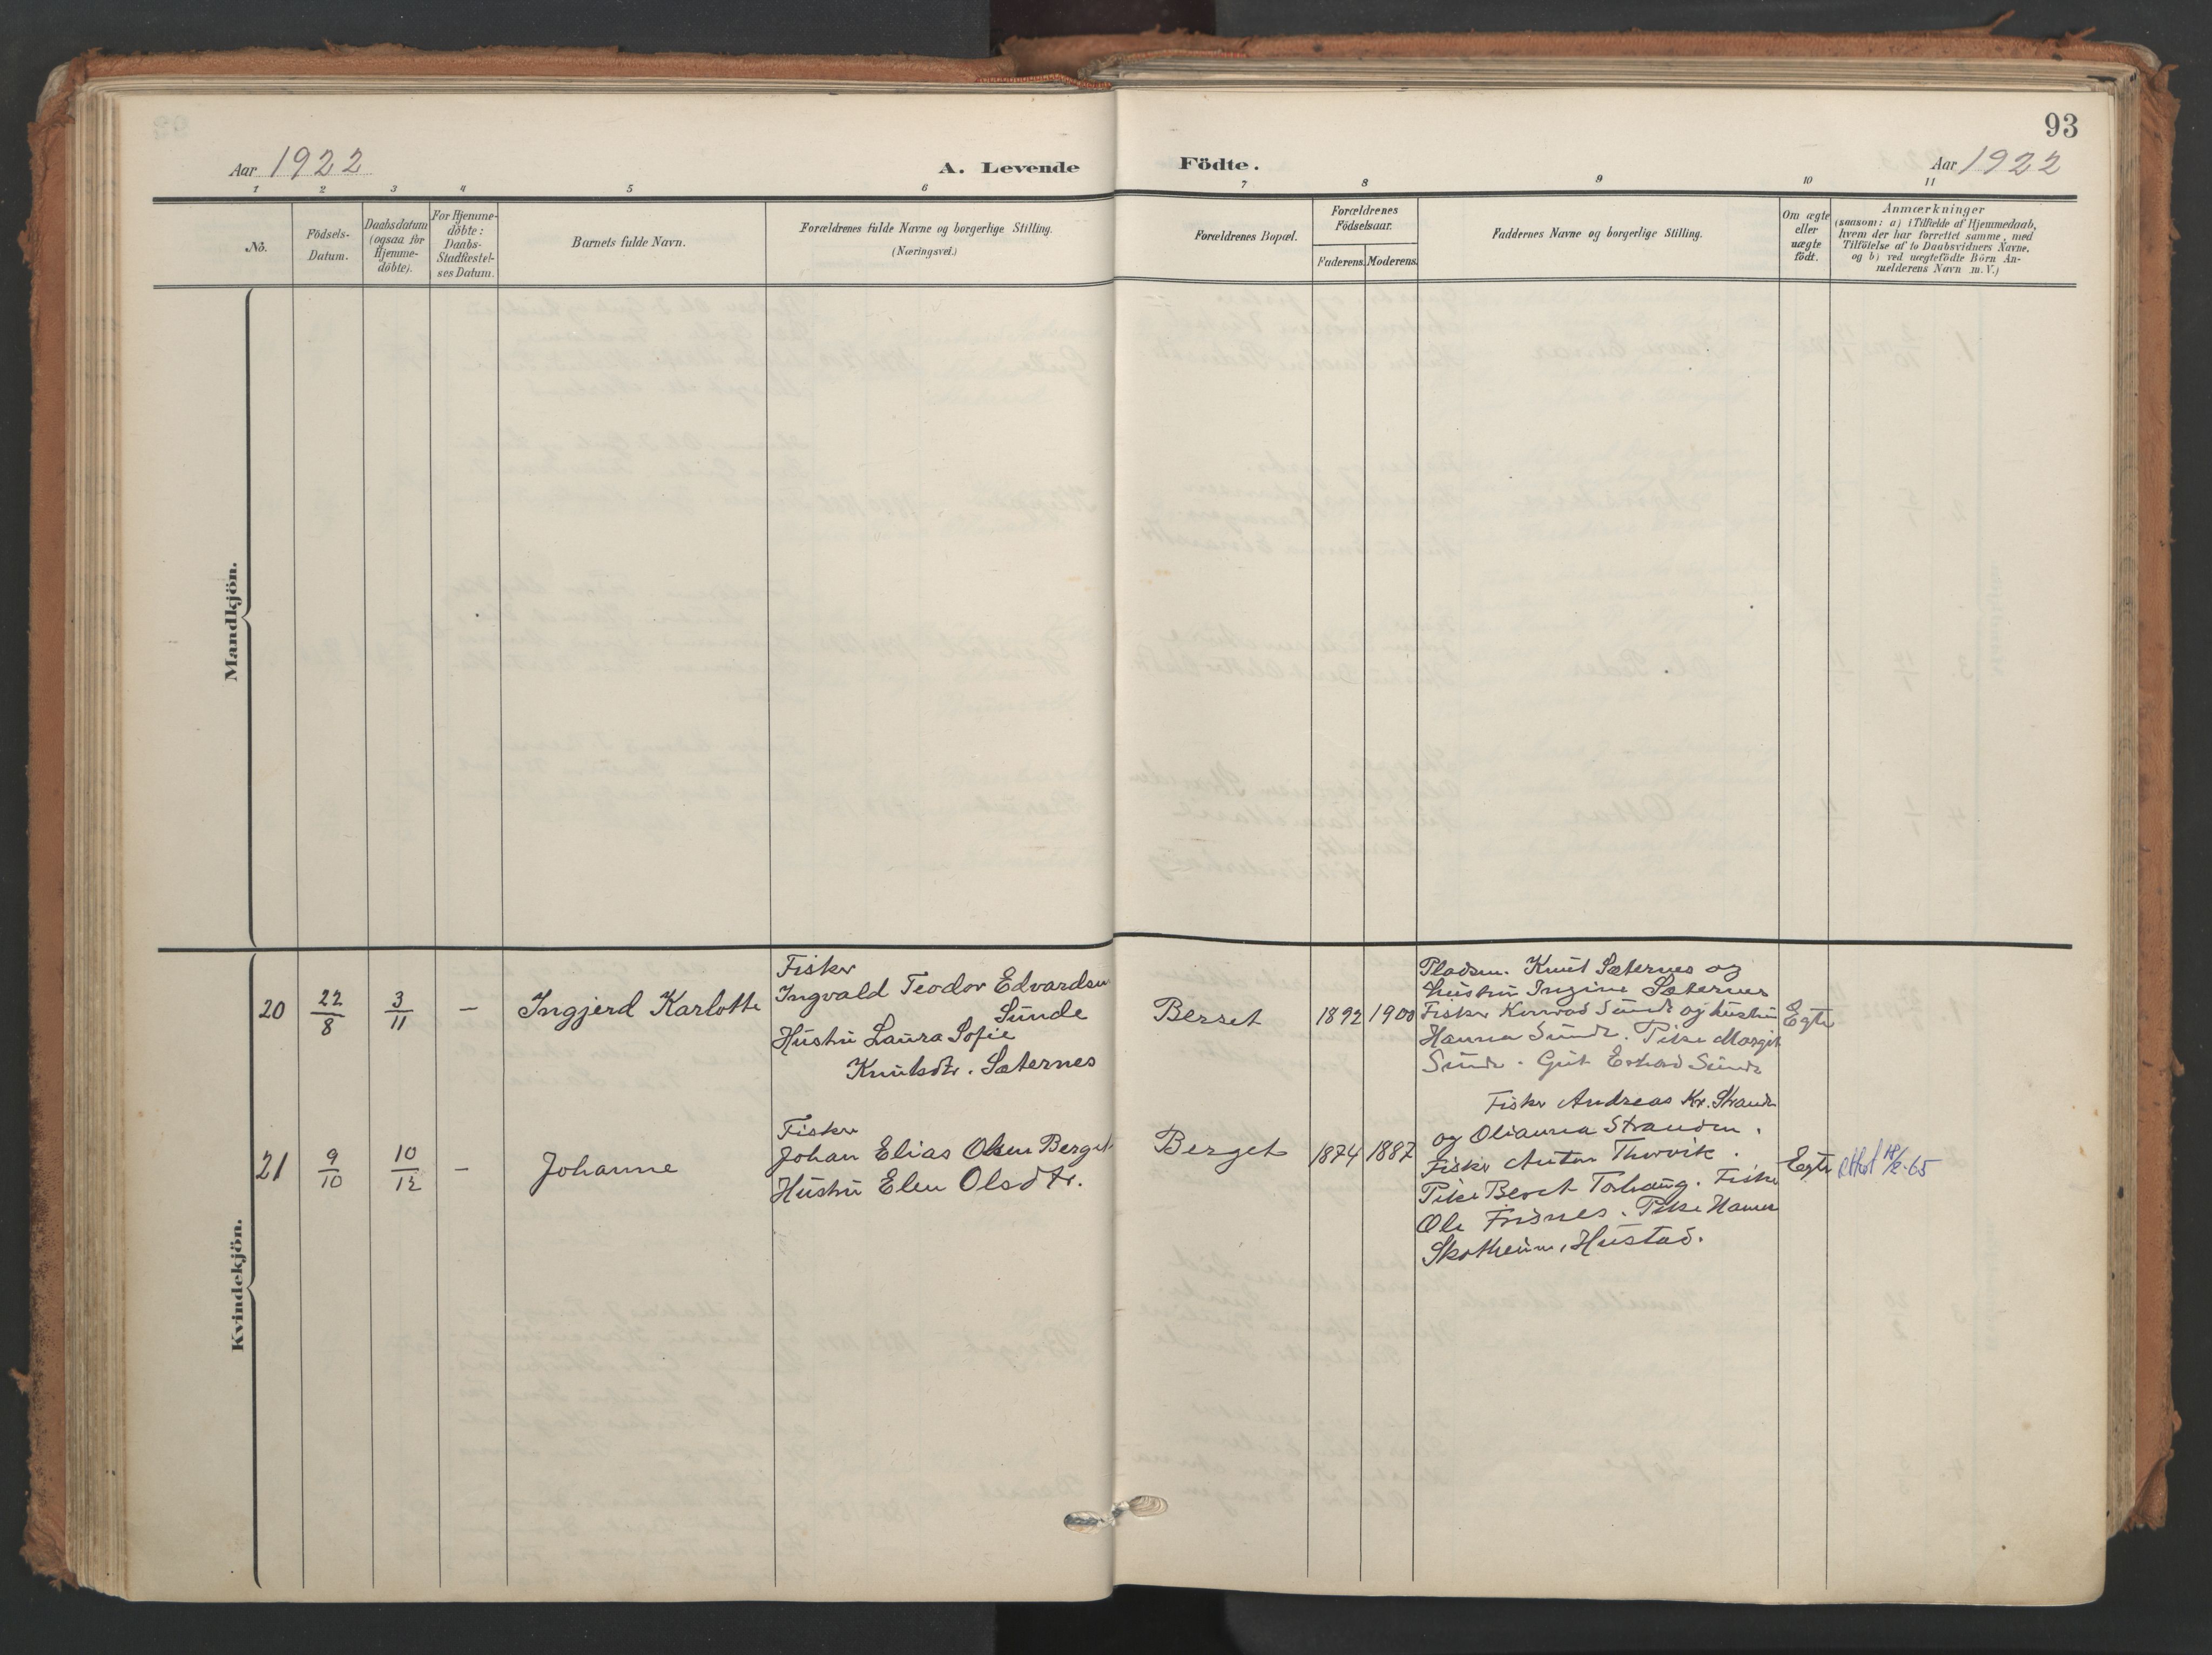 93
Aar 1922
A. Levende Födte.
Aar 1922
1 2 3 4 5 6 7 8 9 10 11
No.
Födsels-
Datum.
Daabsdatum
(ogsaa for
Hjemme-
döbte).
For Hjemme-
döbte:
Daabs-
Stadfæstel-
ses Datum.
Barnets fulde Navn.
Forældrenes fulde Navne og borgerlige Stilling.
(Næringsvei.)
Forældrenes Bopæl.
Forældrenes
Födselsaar.
Faderens. Moderens.
Faddernes Navne og borgerlige Stilling.
Om ægte
eller
uægte
födt.
Anmærkninger
(saasom: a) i Tilfælde af Hjemmedaab,
hvem der har forrettet samme, med
Tilföielse af to Daabsvidners Navne,
og b) ved uægtefödte Börn An-
melderens Navn m. V.)
Mandkjön.
Kvindekjön.
20
22/8
3/11
–
Ingjerd Karlotte
Fisker
Ingvald Teodor Edvardsen
Sunde
Hustru Laura Sofie
Knutsdtr. Sæternes
Berset
1892 1900
Pladsm. Knut Sæternes og
hustru Ingine Sæternes
Fisker Konrad Sunde og hustru
Hanna Sunde. Pike Margit
Sunde. Gut Erhard Sunde
Egte
21
9/10
10/12
–
Johanne
Fisker
Johan Elias Olsen Berget
Hustru Elen Olsdtr.
Berget
1874 1887
Fisker Andreas Kr. Strand
og Olianna Stranden.
Fisker Anton Thorvik.
Pike Beret Torhaug. Fisker
Ole Frisnes. Pike Hanna
Skotheim, Hustad.
Egte